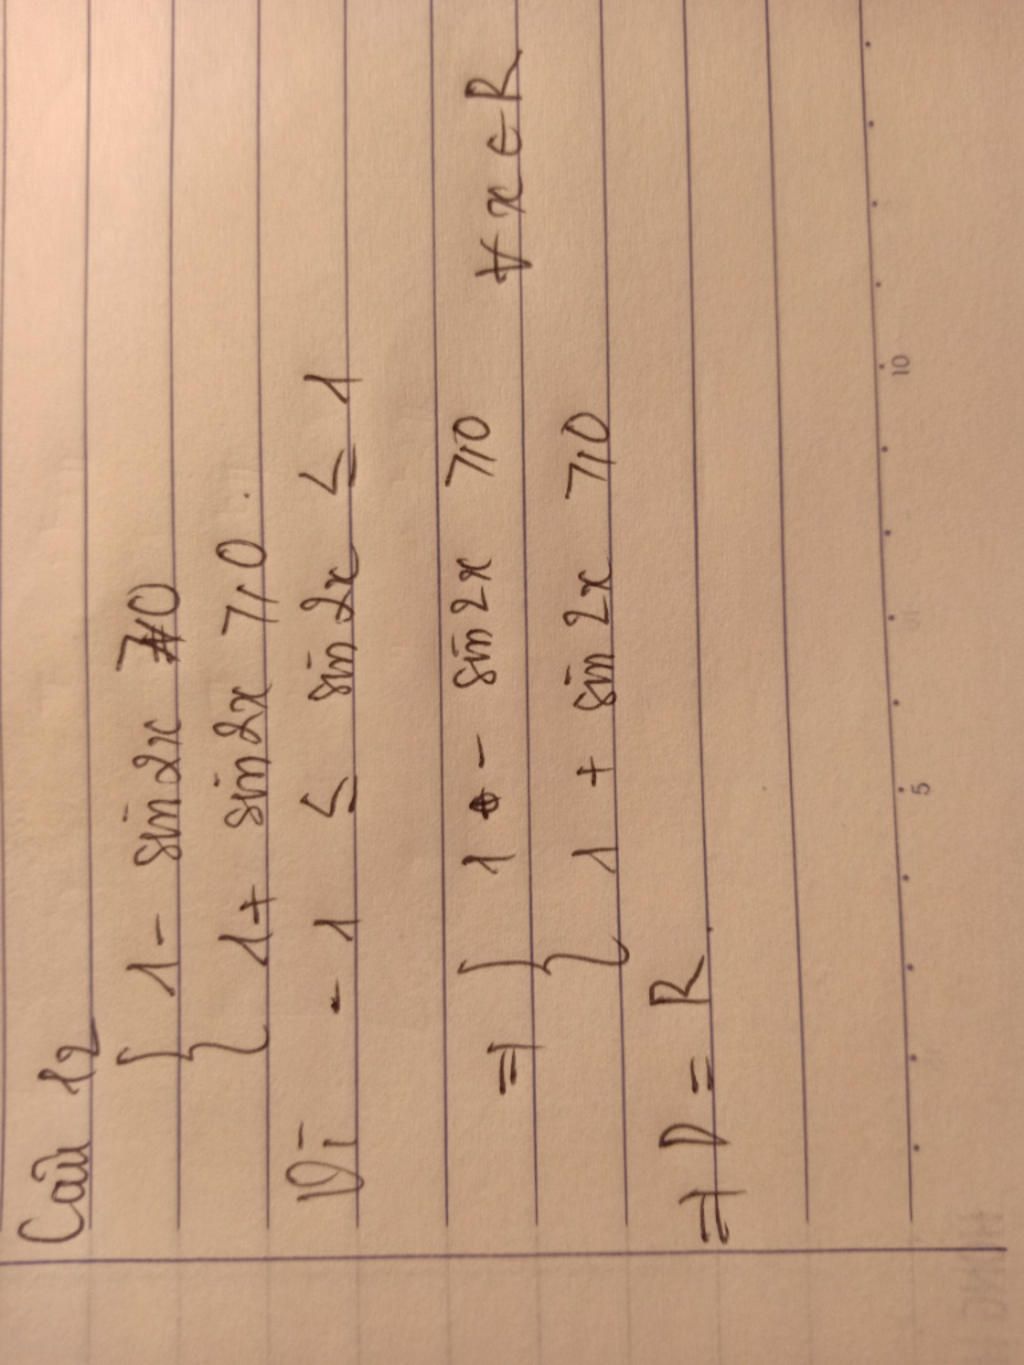 Câu 12
{ 1 - sin2x ⩾ 0
1 + sin2x ⩾ 0.
Vì - 1 ≤ sin 2x ≤ 1
⇒ { 1 - sin 2x ⩾ 0 ∀ x ∈ R
1 + sin 2x ⩾ 0
⇒ D = R
5 10